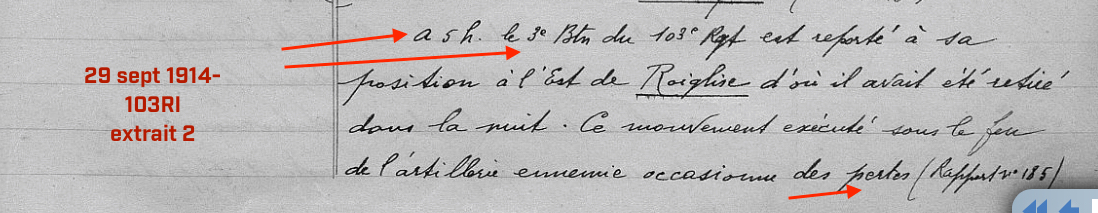 A 5 h. le 3e Btn du 103e Rgt est reporté à sa
position à l'Est de Roiglise d'où il avait été retiré
dans la nuit. Ce mouvement exécuté sous le feu
de l'artillerie ennemie occasionne des pertes (Rapport n° 185)
29 sept 1914-
103RI
extrait 2